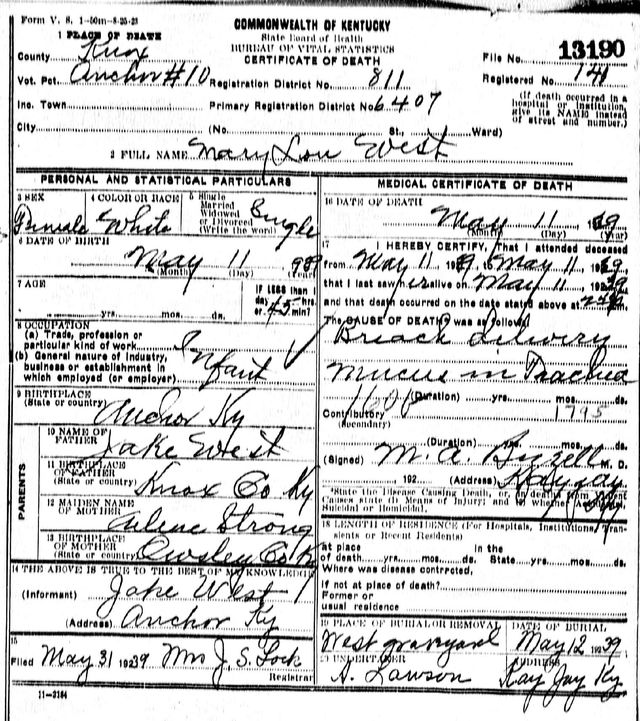 Form V. S. 1-50m-8-25-23
COMMONWEALTH OF KENTUCKY
State Board of Health
BUREAU OF VITAL STATISTICS
CERTIFICATE OF DEATH
1 PLACE OF DEATH
County Knox
File No. 13190
Vot. Pct. Anchor #10 Registration District No. 811
Registered No. 141
Inc. Town Primary Registration District No. 6407
(If death occurred in a hospital or institution, give its NAME instead of street and number.)
City (No. St., Ward)
2 FULL NAME Mary Lou West
PERSONAL AND STATISTICAL PARTICULARS
3 SEX 4 COLOR OR RACE 5 Single Married Widowed or Divorced (Write the word)
Female White Single
6 DATE OF BIRTH
May 11
(Month) (Day) (Year)
7 AGE
yrs. mos. ds.
If LESS than 1 day hrs. or 45 min?
8 OCCUPATION
(a) Trade, profession or particular kind of work
(b) General nature of industry, business or establishment in which employed (or employer)
Infant
9 BIRTHPLACE
(State or country)
Anchor Ky
PARENTS
10 NAME OF FATHER
Jake West
11 BIRTHPLACE OF FATHER
(State or country)
Knox Co Ky
12 MAIDEN NAME OF MOTHER
Strong
13 BIRTHPLACE OF MOTHER
(State or country)
Owsley Co K
14 THE ABOVE IS TRUE TO THE BEST OF MY KNOWLEDGE
(Informant) Jake West
(Address) Anchor Ky
15
Filed May 31 1939 Mrs J. S. Lock
Registrar
11-3184
MEDICAL CERTIFICATE OF DEATH
16 DATE OF DEATH
May 11 39
(Month) (Day) (Year)
17 I HEREBY CERTIFY, That I attended deceased
from May 11 39, to May 11 1939
that I last saw her alive on May 11 1939
and that death occurred on the date stated above at
The CAUSE OF DEATH* was as follows:
Breach Delivery
Mucus in Trachea
(Duration) yrs. mos. ds.
Contributory 1795
(Secondary)
(Duration) yrs. mos. ds.
(Signed) M. A. M. D.
192 (Address) Kayjay
*State the Disease Causing Death, or, in deaths from Violent Causes, state (1) Means of Injury; and (2) whether Accidental, Suicidal or Homicidal.
18 LENGTH OF RESIDENCE (For Hospitals, Institutions, Transients or Recent Residents)
At place of death yrs. mos. ds. In the State yrs. mos. ds.
Where was disease contracted,
If not at place of death?
Former or usual residence
19 PLACE OF BURIAL OR REMOVAL DATE OF BURIAL
West graveyard May 12 1939
20 UNDERTAKER ADDRESS
A. Lawson Kay Jay Ky